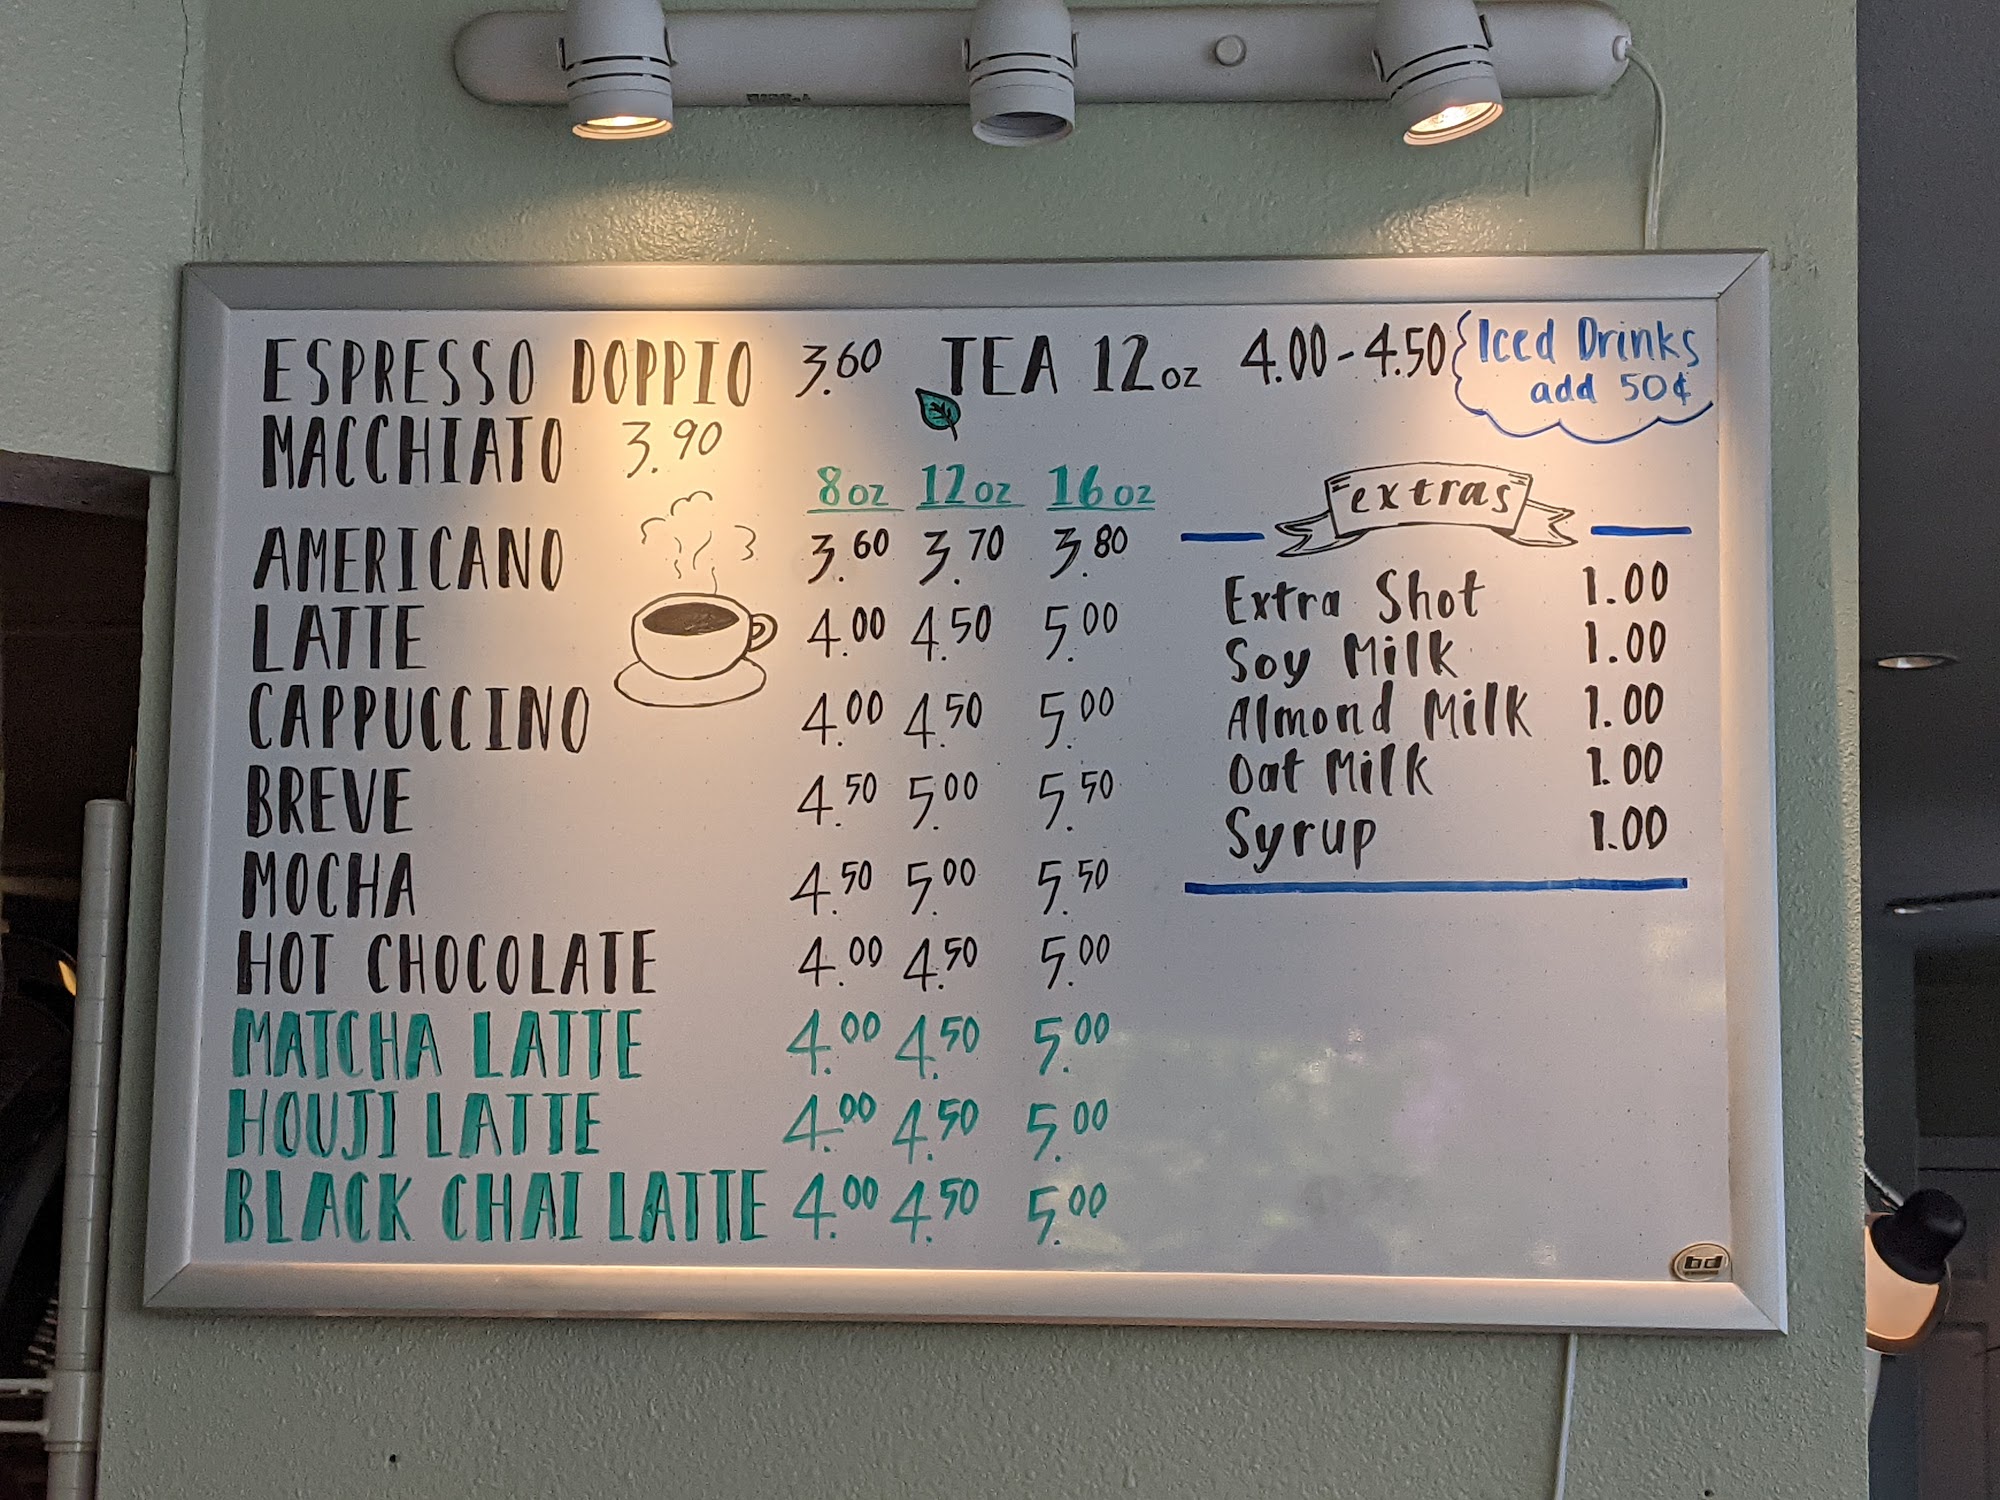 ESPRESSO DOPPIO 3.60
MACCHIATO 3.90
TEA 12oz 4.00-4.50
Iced Drinks
add 50¢
8oz 12oz 16oz
AMERICANO 3.60 3.70 3.80
LATTE 4.00 4.50 5.00
CAPPUCCINO 4.00 4.50 5.00
BREVE 4.50 5.00 5.50
MOCHA 4.50 5.00 5.50
HOT CHOCOLATE 4.00 4.50 5.00
MATCHA LATTE 4.00 4.50 5.00
HOUJI LATTE 4.00 4.50 5.00
BLACK CHAI LATTE 4.00 4.50 5.00
extras
Extra Shot 1.00
Soy Milk 1.00
Almond Milk 1.00
Oat Milk 1.00
Syrup 1.00
bd